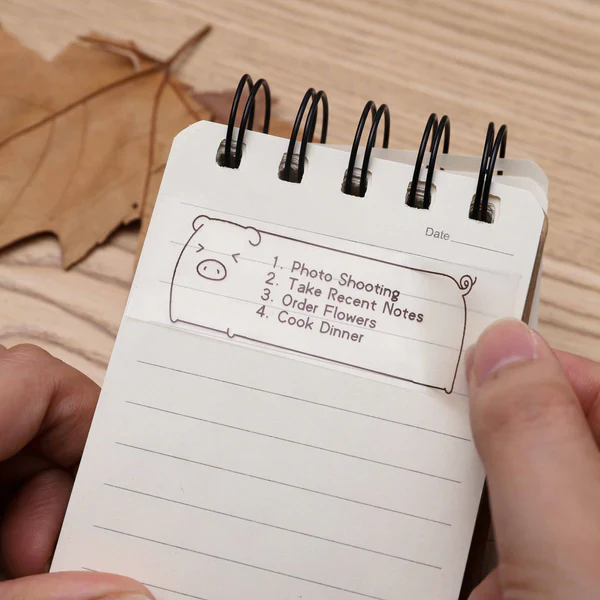 Date
1. Photo Shooting
2. Take Recent Notes
3. Order Flowers
4. Cook Dinner